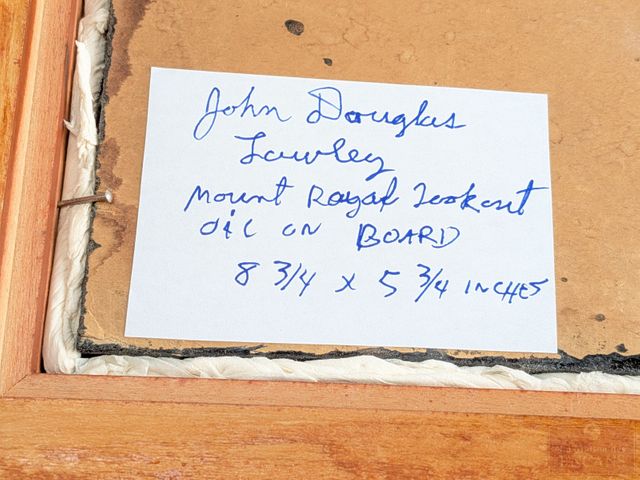 John Douglas
Lawley
Mount Royal Lookout
oil on BOARD
8 3/4 x 5 3/4 INCHES